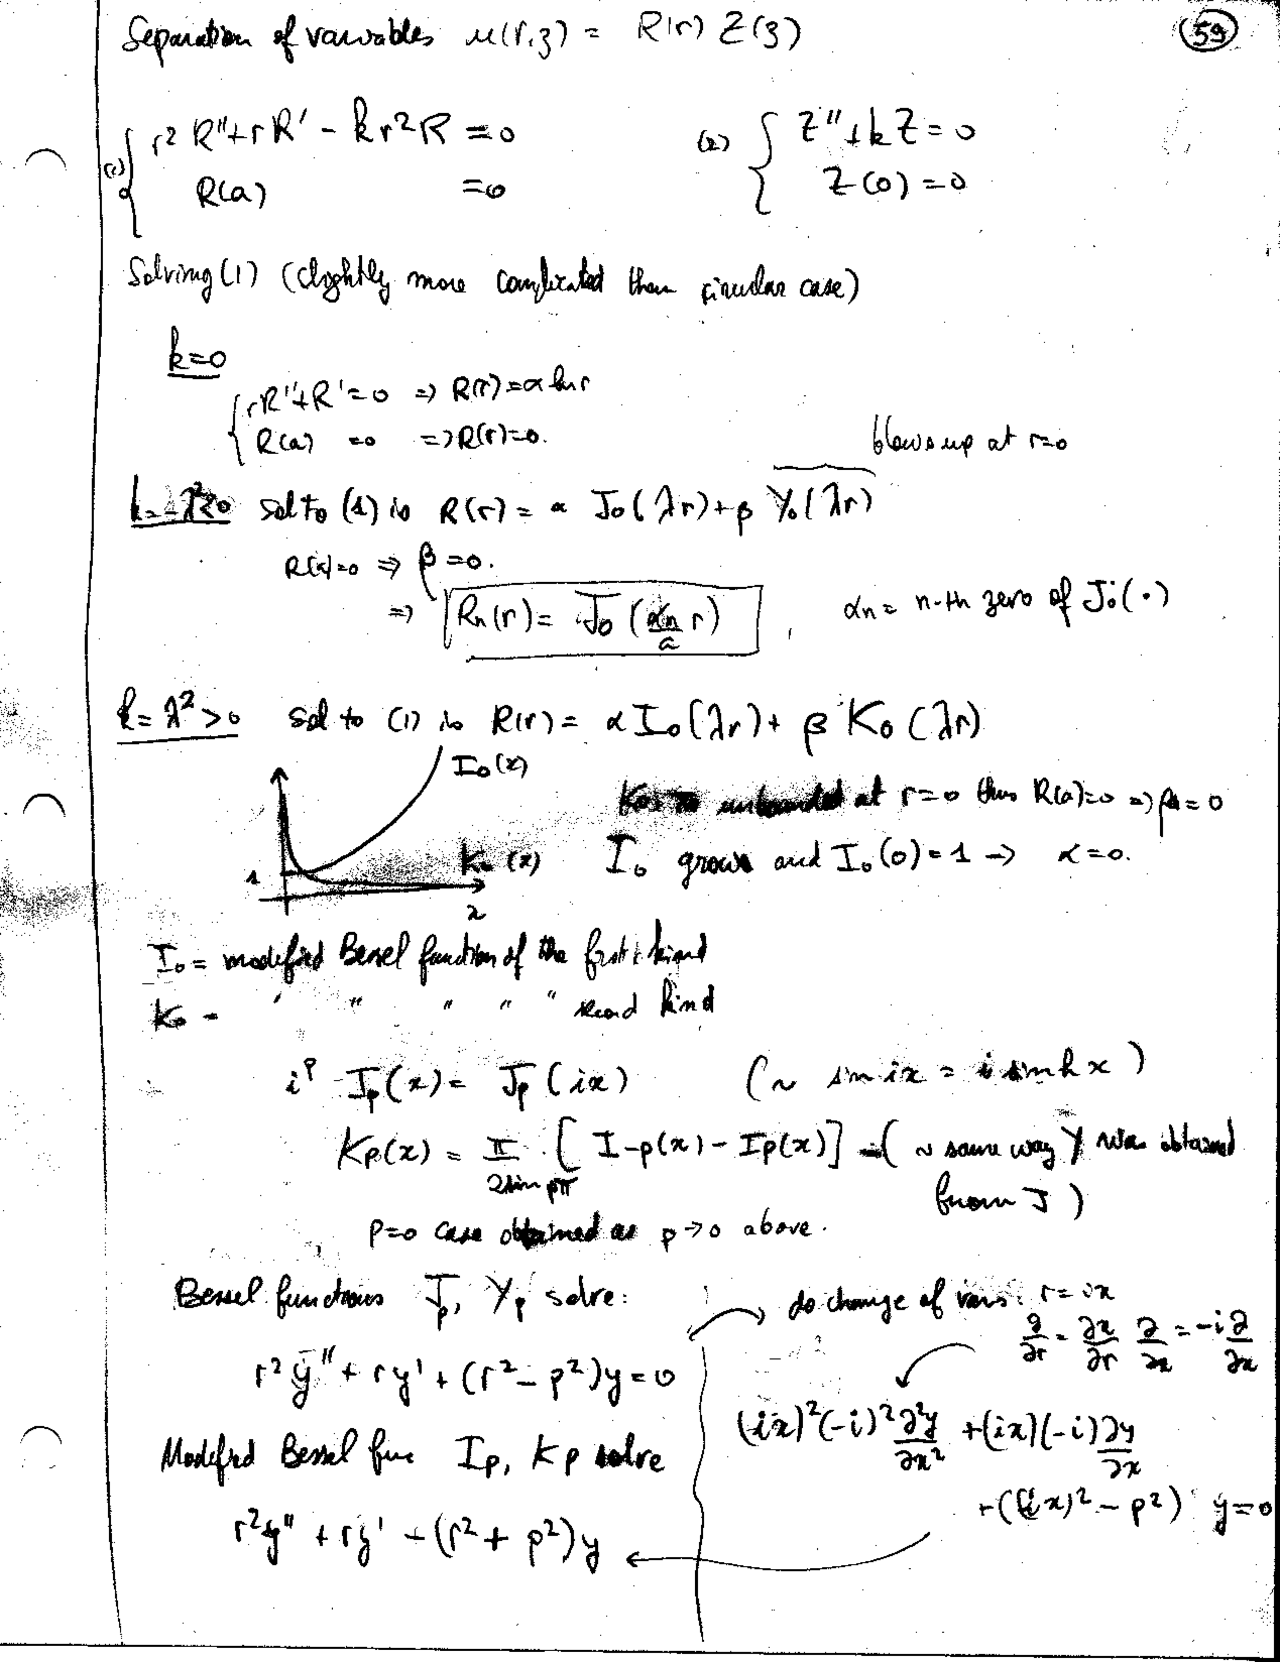 Separation of variables u(r,z) = R(r) Z(z)
59
(1) { r² R'' + r R' - k r² R = 0
R(a) = 0
(2) { Z'' + k Z = 0
Z(0) = 0
Solving (1) (slightly more complicated than circular case)
k=0
{ r R'' + R' = 0 => R(r) = α ln r
R(a) = 0 => R(r) = 0.
blows up at r=0
k = -λ² < 0 sol to (1) is R(r) = α J₀(λr) + β Y₀(λr)
R(a)=0 => β = 0.
=> Rₙ(r) = J₀(αₙ/a r) , αₙ = n-th zero of J₀(·)
k = λ² > 0 sol to (1) is R(r) = α I₀(λr) + β K₀(λr)
I₀(x)
K₀(x)
1
x
unbounded at r=0 thus R(a)=0 => β = 0
I₀ grows and I₀(0) = 1 → α = 0.
I₀ = modified Bessel function of the first kind
K₀ = " " " " " second kind
iᵖ Iₚ(x) = Jₚ(ix) (~ sin ix = i sinh x)
Kₚ(x) = π/(2 sin pπ) [I₋ₚ(x) - Iₚ(x)] (~ same way Y was obtained
from J)
p=0 case obtained as p→0 above.
Bessel functions Jₚ, Yₚ solve:
r² y'' + r y' + (r² - p²) y = 0
Modified Bessel func Iₚ, Kₚ solve
r² y'' + r y' - (r² + p²) y
do change of vars: r = ix
∂/∂r = ∂x/∂r ∂/∂x = -i ∂/∂x
(ix)² (-i)² ∂²y/∂x² + (ix)(-i) ∂y/∂x
+ ((ix)² - p²) y = 0